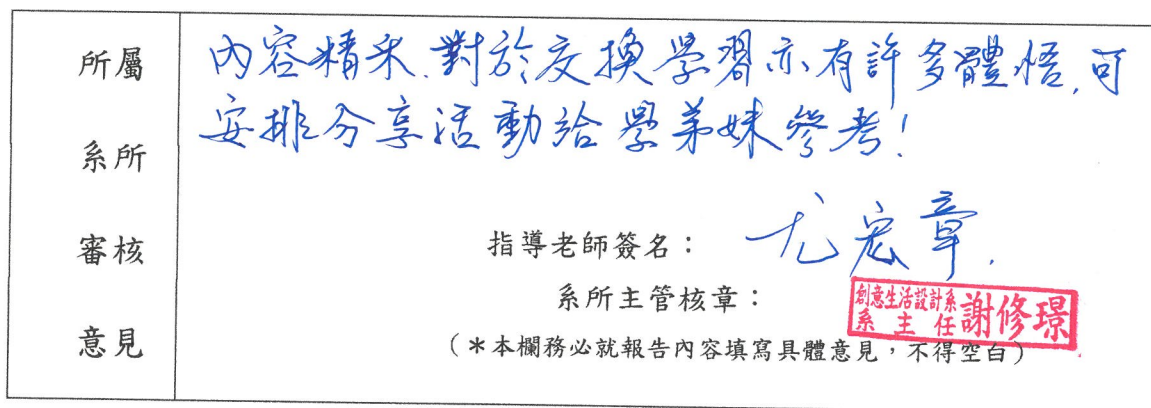 所屬
系所
審核
意見
內容精采.對於交換學習亦有許多體悟,可
安排分享活動給學弟妹參考!
指導老師簽名: 尤宏章.
系所主管核章:
創意生活設計系
系主任 謝修璟
(*本欄務必就報告內容填寫具體意見,不得空白)